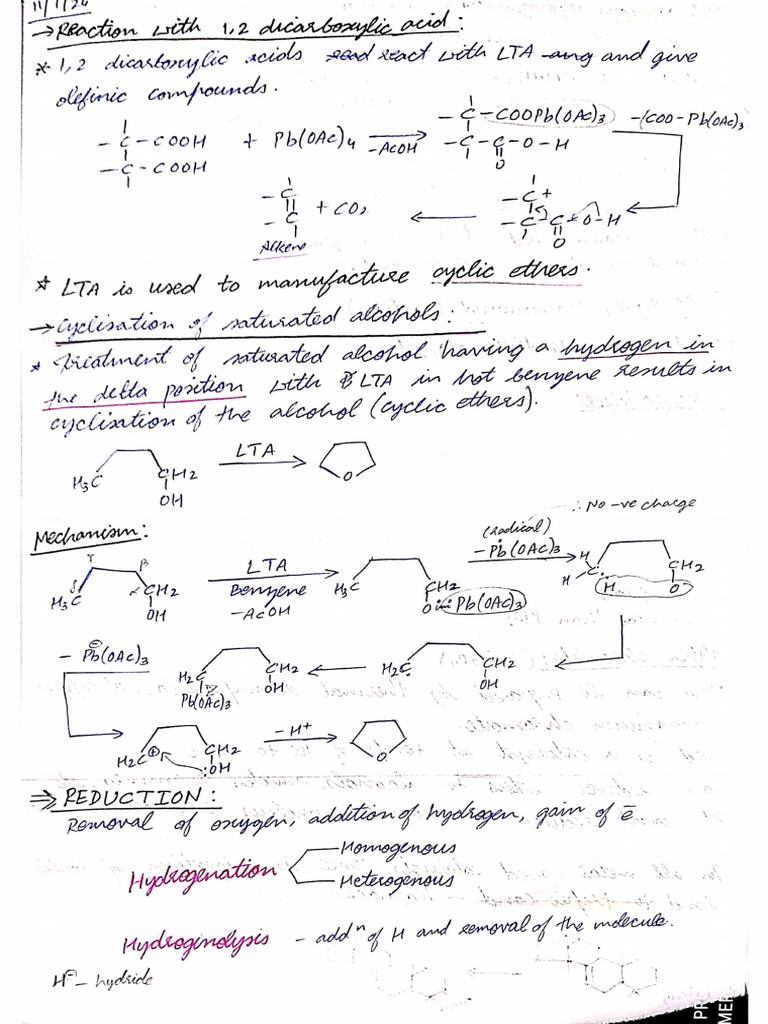 11/1/24
→ Reaction with 1,2 dicarboxylic acid:
* 1,2 dicarboxylic acids react with LTA and give
olefinic compounds.
- C - COOH
- C - COOH
+ Pb(OAc)4
-AcOH
- C - COOPb(OAc)3
- C - C - O - H
O
-(COO-Pb(OAc)3
- C +
- C - C - O - H
O
- C
- C
+ CO2
Alkene
* LTA is used to manufacture cyclic ethers.
→ Cyclisation of saturated alcohols:
* Treatment of saturated alcohol having a hydrogen in
the delta position with LTA in hot benzene results in
cyclisation of the alcohol (cyclic ethers).
H3C CH2 OH
LTA
O
Mechanism:
H3C δ γ β α CH2 OH
LTA
Benzene
-AcOH
H3C CH2
O Pb(OAc)3
(Radical)
-Pb(OAc)3
∴ No -ve charge
H H C H CH2 O
H2C CH2 OH
H2C CH2 OH
Pb(OAc)3
- Pb(OAc)3
H2C⊕ CH2 :OH
-H+
O
⇒ REDUCTION:
Removal of oxygen, addition of hydrogen, gain of e̅.
Hydrogenation
Homogenous
Heterogenous
Hydroginolysis - addⁿ of H and removal of the molecule.
H⁻ - hydride
PR
MER